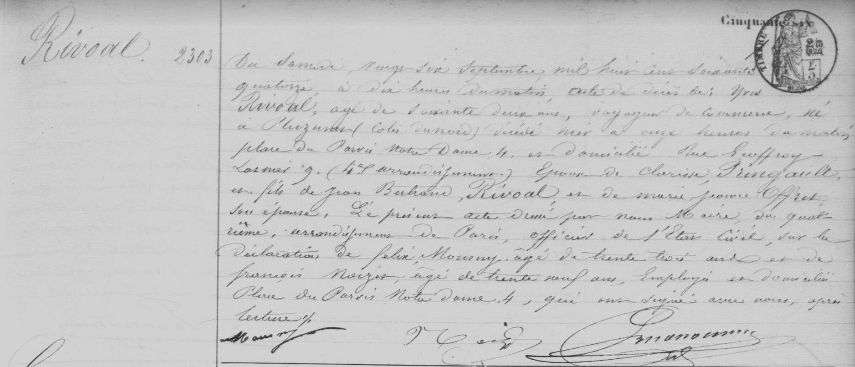 Cinquante six
TIMBRE
Rivoal.
2303
Du Samedi, vingt six Septembre mil huit cent soixante
quatorze, à dix heures du matin, acte de décès de: Yves
Rivoal, agé de soixante deux ans, voyageur de Commerce, né
à Pluzunet (Côtes du nord) décédé hier à onze heures du matin
place du Parvis Notre Dame 4. et domicilié Rue Geoffroy
Lasnier 9. (4e arrondissement.) Epoux de Clarisse
et fils de Jean Bertrand Rivoal et de marie jeanne Offret
son épouse. Le présent acte dressé par nous Maire du quat
rième, arrondissement de Paris, officier de l'Etat Civil, sur la
déclaration de felix Mousny, âgé de trente trois ans et de
françois Noizet agé de trente neuf ans, Employés et domiciliés
Place du Parvis Notre Dame 4, qui ont signé avec nous, après
lecture